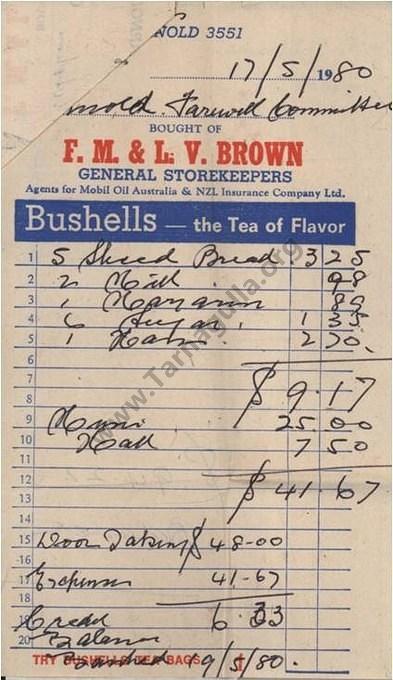 NOLD 3551
17/5/1980
nold. Farewell Committee
BOUGHT OF
F. M. & L. V. BROWN
GENERAL STOREKEEPERS
Agents for Mobil Oil Australia & NZL Insurance Company Ltd.
Bushells — the Tea of Flavor
1 5 Sliced Bread. 3 25
2 2 Milk 98
3 1 Margarin 89
4 6 Sugar. 1 35
5 1 Ham. 2 70.
6
7 $ 9.17
8
9 Music 25.00
10 Hall 7 50
11
12 $ 41.67
13
14
15 Door Takings $ 48-00
16
17 Expenses 41-67
18
19 Credit 6.33
20 Balance
TRY BUSHELLS TEA BAGS
Banked 19/5/80.
www.Tarnagulla.org